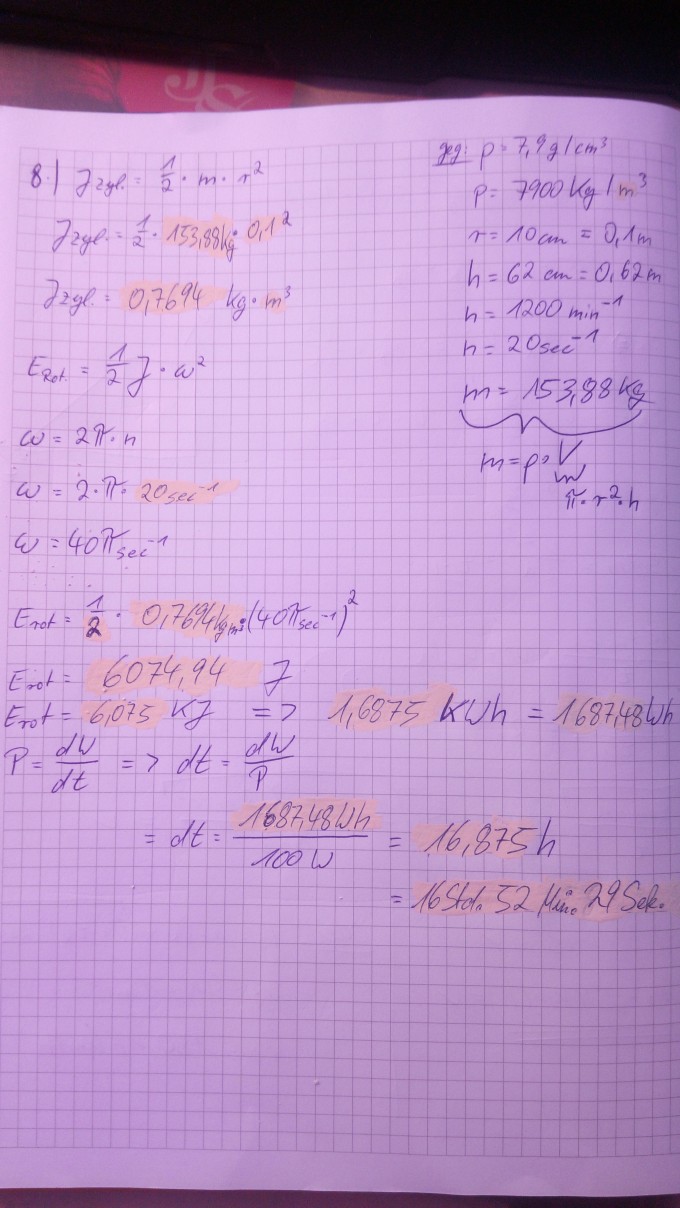 8.) Jzyl. = 1/2 · m · r²
Jzyl. = 1/2 · 153,88kg · 0,1²
Jzyl. = 0,7694 kg·m³
ERot. = 1/2 J · ω²
ω = 2π·n
ω = 2·π· 20sec⁻¹
ω = 40π sec⁻¹
Erot = 1/2 · 0,7694kgm³·(40π sec⁻¹)²
Erot = 6074,94 J
Erot = 6,075 KJ => 1,6875 KWh = 1687,48Wh
P = dW/dt => dt = dW/P
= dt = 1687,48Wh/100W = 16,875h
= 16Std. 52 Min. 29 Sek.
geg: ρ = 7,9g/cm³
ρ = 7900Kg/m³
r = 10cm = 0,1m
h = 62cm = 0,62m
n = 1200min⁻¹
n = 20sec⁻¹
m = 153,88Kg
m = ρ·V
π·r²·h